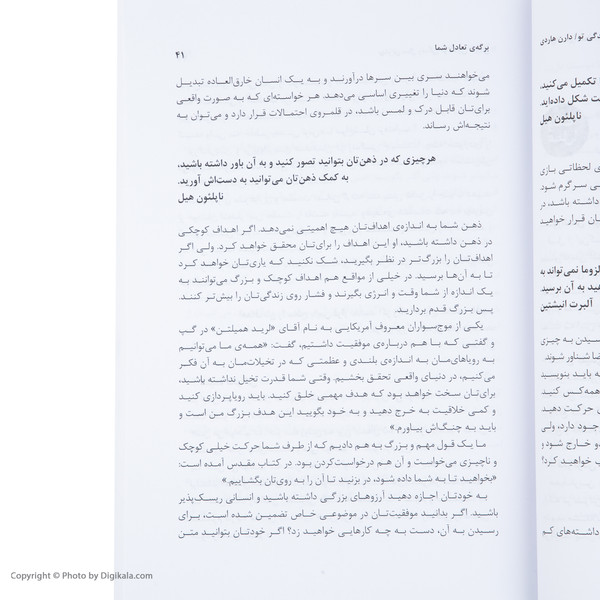 برگه‌ی تعادل شما
۴۱
می‌خواهند سری بین سرها درآورند و به یک انسان خارق‌العاده تبدیل
شوند که دنیا را تغییری اساسی می‌دهد. هر خواسته‌ای که به صورت واقعی
برای‌تان قابل درک و لمس باشد، در قلمروی احتمالات قرار دارد و می‌توان به
نتیجه‌اش رساند.
هرچیزی که در ذهن‌تان بتوانید تصور کنید و به آن باور داشته باشید،
به کمک ذهن‌تان می‌توانید به دست‌اش آورید.
ناپلئون هیل
ذهن شما به اندازه‌ی اهداف‌تان هیچ اهمیتی نمی‌دهد. اگر اهداف کوچکی
در ذهن داشته باشید، او این اهداف را برای‌تان محقق خواهد کرد. ولی اگر
اهداف‌تان را بزرگ‌تر در نظر بگیرید، شک نکنید که یاری‌تان خواهد کرد
تا به آن‌ها برسید. در خیلی از مواقع هم اهداف کوچک و بزرگ می‌توانند به
یک اندازه از شما وقت و انرژی بگیرند و فشار روی زندگی‌تان را بیش‌تر کنند.
پس بزرگ قدم بردارید.
یکی از موج‌سواران معروف آمریکایی به نام آقای «لرید همیلتن» در گپ
و گفتی که با هم درباره‌ی موفقیت داشتیم، گفت: «همه‌ی ما می‌توانیم
به رویاهای‌مان به اندازه‌ی بلندی و عظمتی که در تخیلات‌مان به آن فکر
می‌کنیم، در دنیای واقعی تحقق بخشیم. وقتی شما قدرت تخیل نداشته باشید،
برای‌تان سخت خواهد بود که هدف مهمی خلق کنید. باید رویاپردازی کنید
و کمی خلاقیت به خرج دهید و به خود بگویید این هدف بزرگ من است و
باید به چنگ‌اش بیاورم.»
ما یک قول مهم و بزرگ به هم دادیم که از طرف شما حرکت خیلی کوچک
و ناچیزی می‌خواست و آن هم درخواست‌کردن بود. در کتاب مقدس آمده است:
«بخواهید تا به شما داده شود، در بزنید تا آن را به روی‌تان بگشاییم.»
به خودتان اجازه دهید آرزوهای بزرگی داشته باشید و انسانی ریسک‌پذیر
باشید. اگر بدانید موفقیت‌تان در موضوعی خاص تضمین شده است، برای
رسیدن به آن، دست به چه کارهایی خواهید زد؟ اگر خودتان بتوانید متن
دارن هاردی
تکمیل می‌کنید.
شکل داده‌اید.
ناپلئون هیل
لحظاتی بازی
سرگرم شود
داشته باشد، در
قرار خواهید
لزوما نمی‌تواند به
به آن برسید.
آلبرت انیشتین
به چیزی
شناور شوند
به باید بنویسید
همه‌کس کنید
حرکت دهید
دارد، ولی
خارج شود و
خواهید کرد؟
داشته‌های کم
Copyright © Photo by Digikala.com